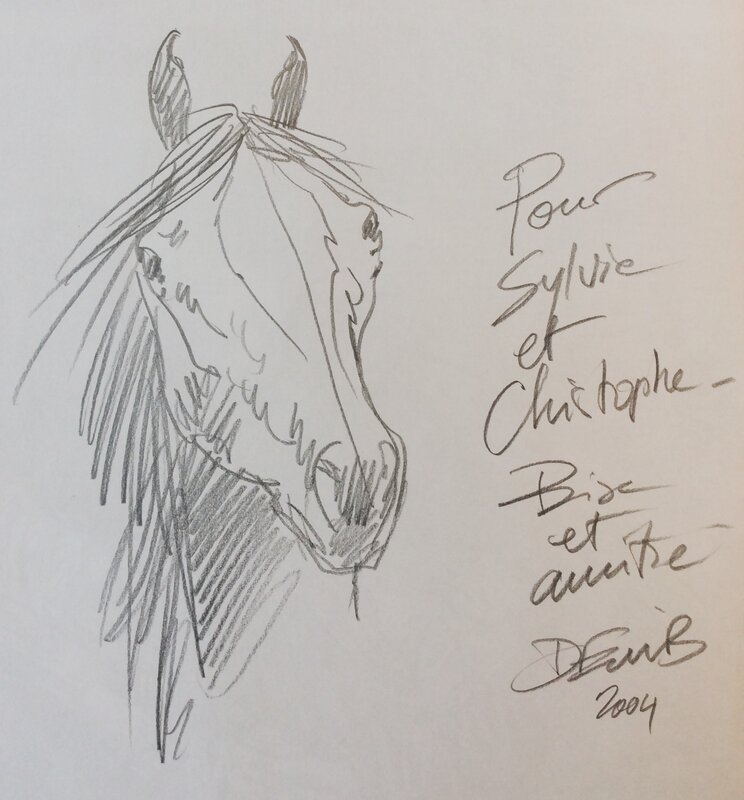 Pour
Sylvie
et
Christophe -
Bise
et
amitié
DEniS
2004